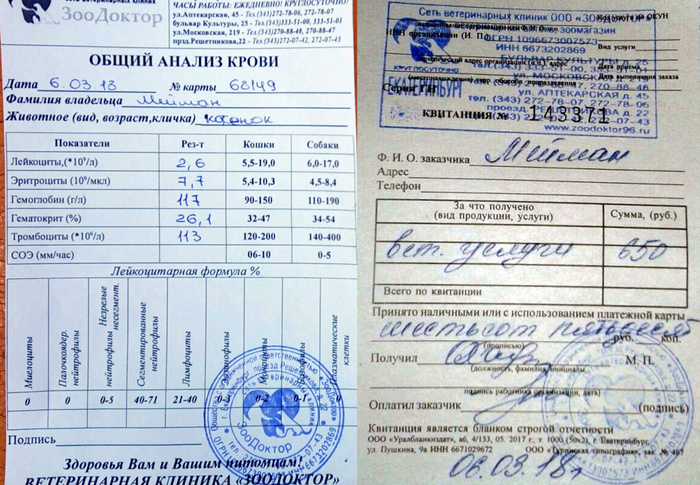 ЗооДоктор
ЧАСЫ РАБОТЫ: ЕЖЕДНЕВНО КРУГЛОСУТОЧНО:
ул.Аптекарская, 45 - Тел.(343)272-78-06, 272-78-07
бульвар Культуры, 25 - Тел.(343)333-51-00, 333-51-01
ул.Московская, 219- Тел.(343)270-88-48, 270-88-47
пр-зд.Решетникова, 22 - Тел.(343)207-07-42, 207-07-43
ОБЩИЙ АНАЛИЗ КРОВИ
Дата 6.03.18 № карты 68149
Фамилия владельца Мейман
Животное (вид, возраст, кличка) котенок
Показатели Рез-т Кошки Собаки
Лейкоциты,(*10⁹/л) 2,6 5,5-19,0 6,0-17,0
Эритроциты (10⁶/мкл) 7,7 5,4-10,3 4,5-8,4
Гемоглобин (г/л) 117 90-150 110-190
Гематокрит (%) 26,1 32-47 34-54
Тромбоциты (*10⁶/л) 113 120-200 140-400
СОЭ (мм/час) 06-10 0-5
Лейкоцитарная формула %
Миелоциты
Палочкоядер. нейтрофилы
Незрелые несегмент. нейтрофилы
Сегментированные нейтрофилы
Лимфоциты
клетки
0 0 0-5 40-71 21-40 0-3 0-2 0-1 0
ЗооДоктор
Подпись
Здоровья Вам и Вашим питомцам!
ВЕТЕРИНАРНАЯ КЛИНИКА «ЗООДОКТОР»
Сеть ветеринарных клиник ООО
зоомагазин
ОГРН 1096673007573
ИНН 6673202869
Вид услуги
КРУГЛОСУТОЧНО
ЕКАТЕРИНБУРГ
УЛ. АПТЕКАРСКАЯ 45
тел. (343) 272-78-07, 272-78-06
www.zoodoktor96.ru
КВИТАНЦИЯ № 143371
Ф. И. О. заказчика Мейман
Адрес
Телефон
За что получено (вид продукции, услуги) Сумма, (руб.)
вет. услуги 650
Всего по квитанции
Принято наличными или с использованием платежной карты
шестьсот пятьдесят
(прописью) руб. коп.
Получил М. П.
(должность, фамилия, инициалы)
подпись работника организации, дата)
Оплатил заказчик (подпись)
Квитанция является бланком строгой отчетности
ООО «Уралбланкиздат», 4/133, 05. 2017 г., т. 1000 (50x2), г. Екатеринбург,
ул. Пушкина, 9а ИНН 6671029672 зак. № 467
06.03.18г